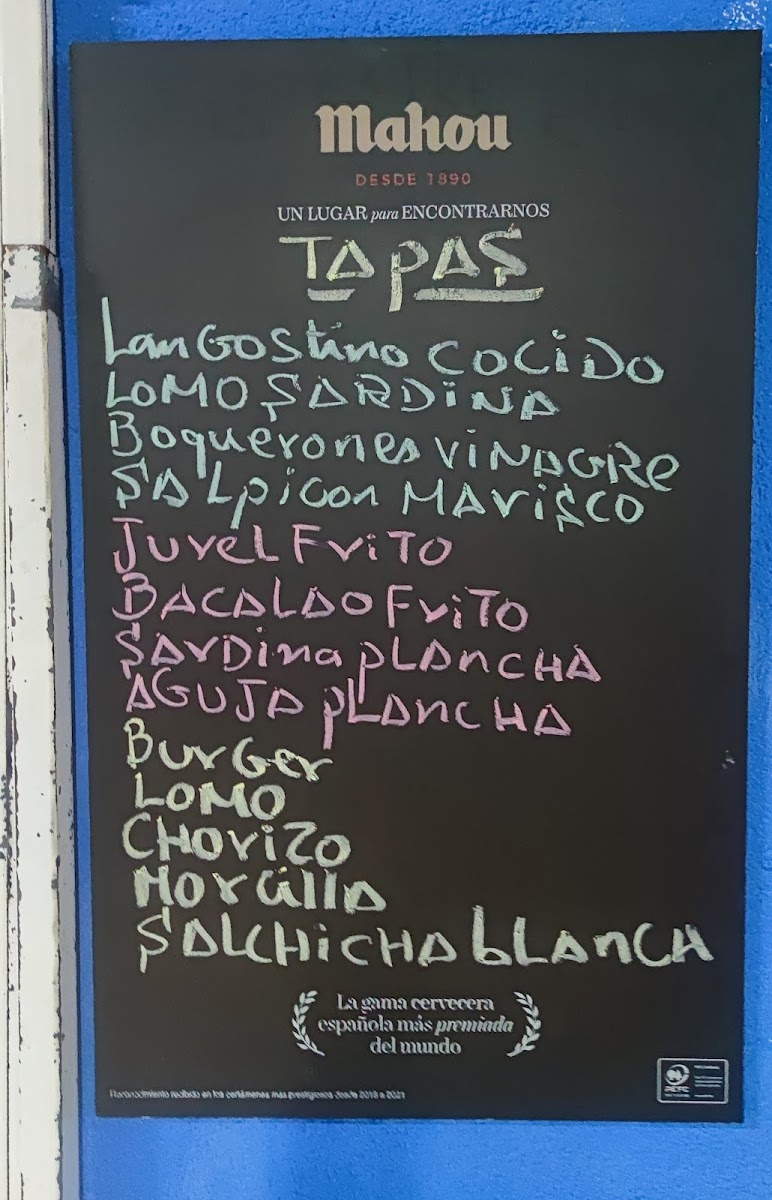 Mahou
DESDE 1890
UN LUGAR para ENCONTRARNOS
TAPAS
LanGOStino COCiDO
LOMO SARDiNA
Boquerones ViNAGRe
SALpicon MAriSCO
JureL FriTO
BACALAO FriTO
SArDina pLAnCHA
AGUJA pLAnCHA
BurGer
LOMO
CHOriZO
MOrcillA
SALCHiCHA bLAnCA
La gama cervecera
española más premiada
del mundo
Reconocimiento recibido en los certámenes más prestigiosos desde 2018 a 2021